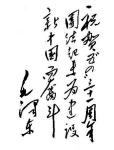 祝賀五四三十一周年
团结起来为建设
新中国而奋斗
毛泽东